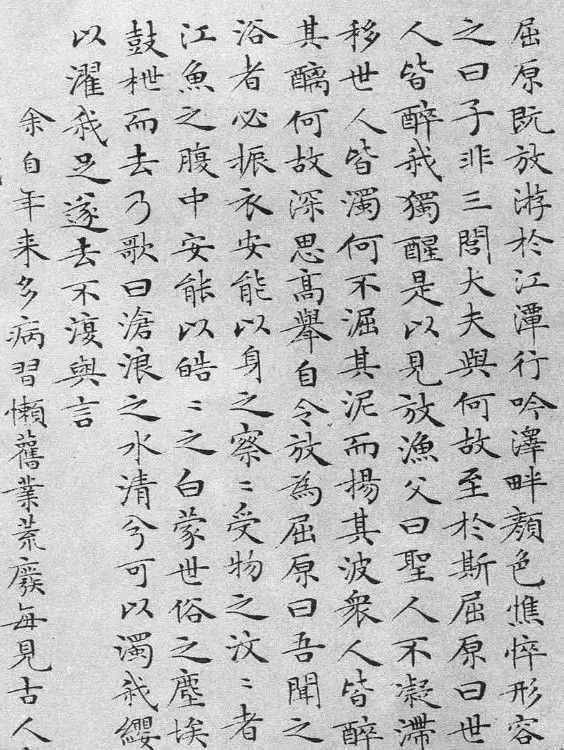 屈原既放游於江潭行吟澤畔顏色憔悴形容
之曰子非三閭大夫與何故至於斯屈原曰世
人皆醉我獨醒是以見放漁父曰聖人不凝滯
移世人皆濁何不淈其泥而揚其波衆人皆醉
其醨何故深思高舉自令放為屈原曰吾聞之
浴者必振衣安能以身之察〻受物之汶〻者
江魚之腹中安能以皓〻之白蒙世俗之塵埃
鼓枻而去乃歌曰滄浪之水清兮可以濁我纓
以濯我足遂去不復與言
余自年来多病習懶舊業荒廢每見古人